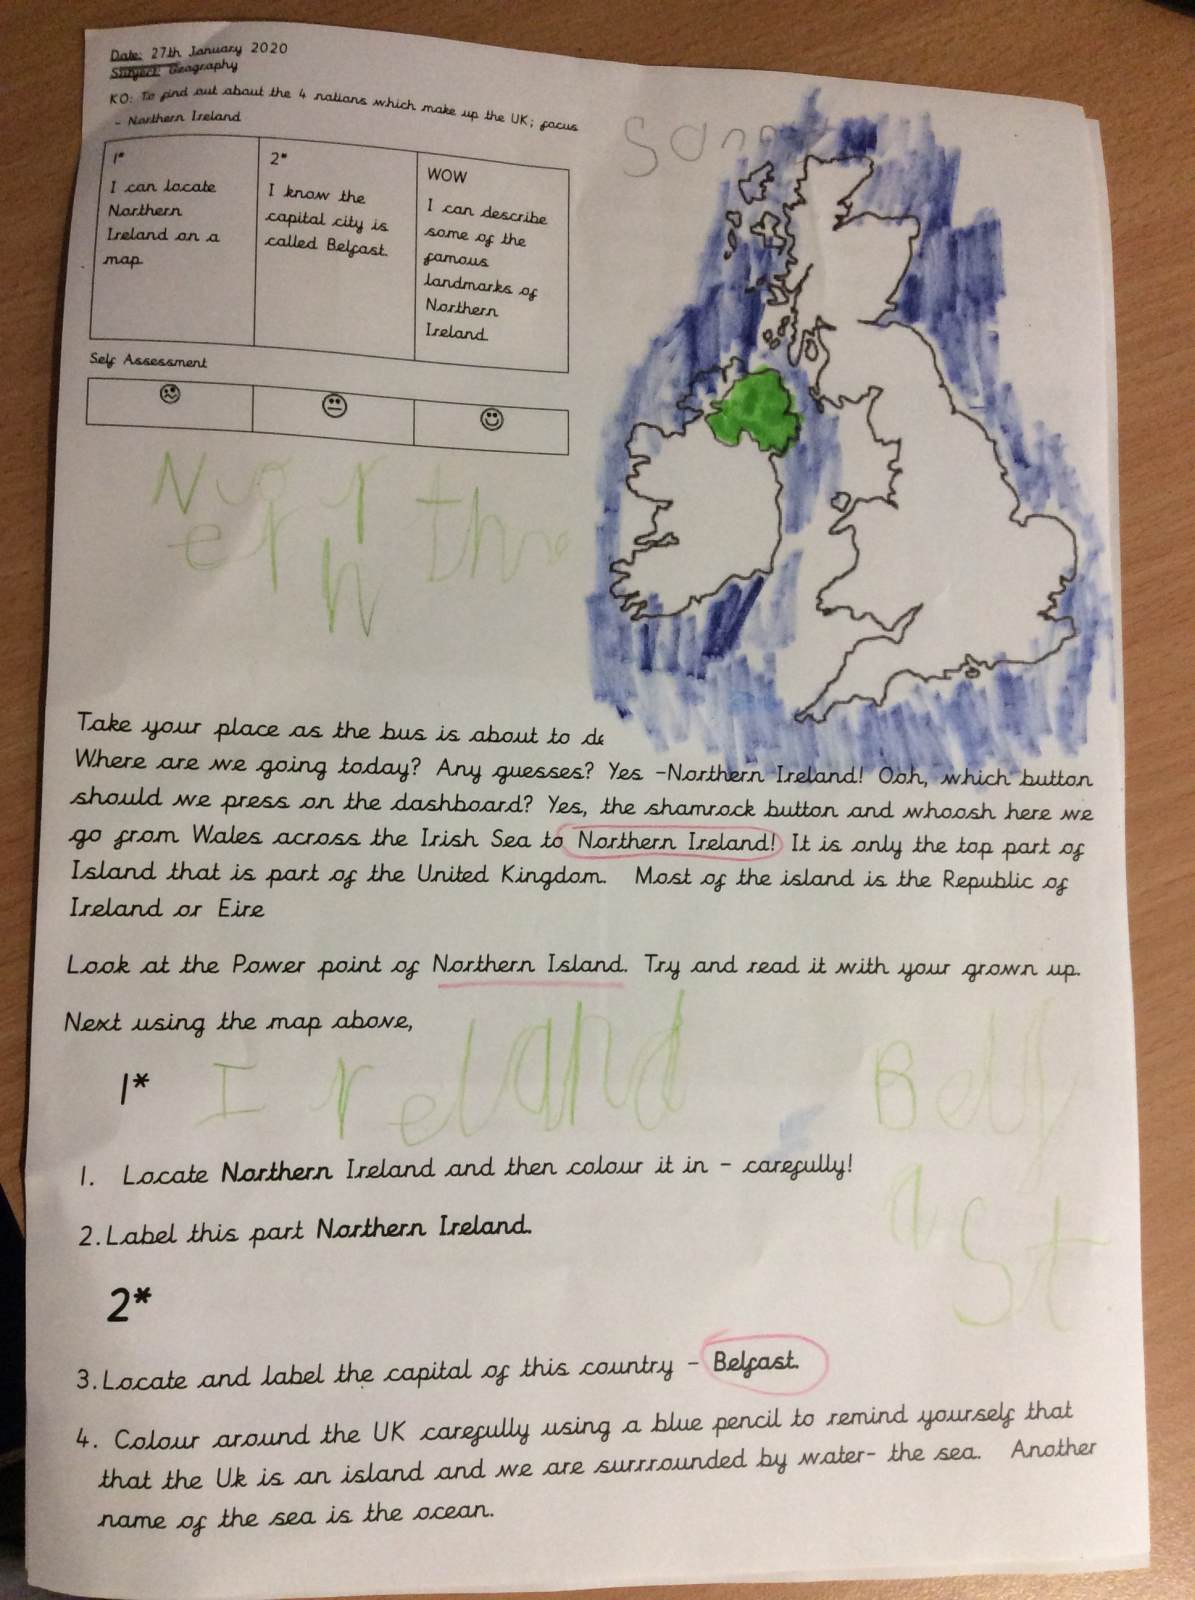 Date: 27th January 2020
Subject: Geography
KO: To find out about the 4 nations which make up the UK; focus
- Northern Ireland
1*
I can locate
Northern
Ireland on a
map.
2*
I know the
capital city is
called Belfast.
WOW
I can describe
some of the
famous
landmarks of
Northern
Ireland.
Self Assessment
North
ern
Take your place as the bus is about to de
Where are we going today? Any guesses? Yes -Northern Ireland! Ooh, which button
should we press on the dashboard? Yes, the shamrock button and whoosh here we
go from Wales across the Irish Sea to Northern Ireland! It is only the top part of
Island that is part of the United Kingdom. Most of the island is the Republic of
Ireland or Eire
Look at the Power point of Northern Island. Try and read it with your grown up.
Next using the map above,
1*
Ireland
Belf
ast
1. Locate Northern Ireland and then colour it in - carefully!
2. Label this part Northern Ireland.
2*
3. Locate and label the capital of this country - Belfast.
4. Colour around the UK carefully using a blue pencil to remind yourself that
that the Uk is an island and we are surrrounded by water- the sea. Another
name of the sea is the ocean.